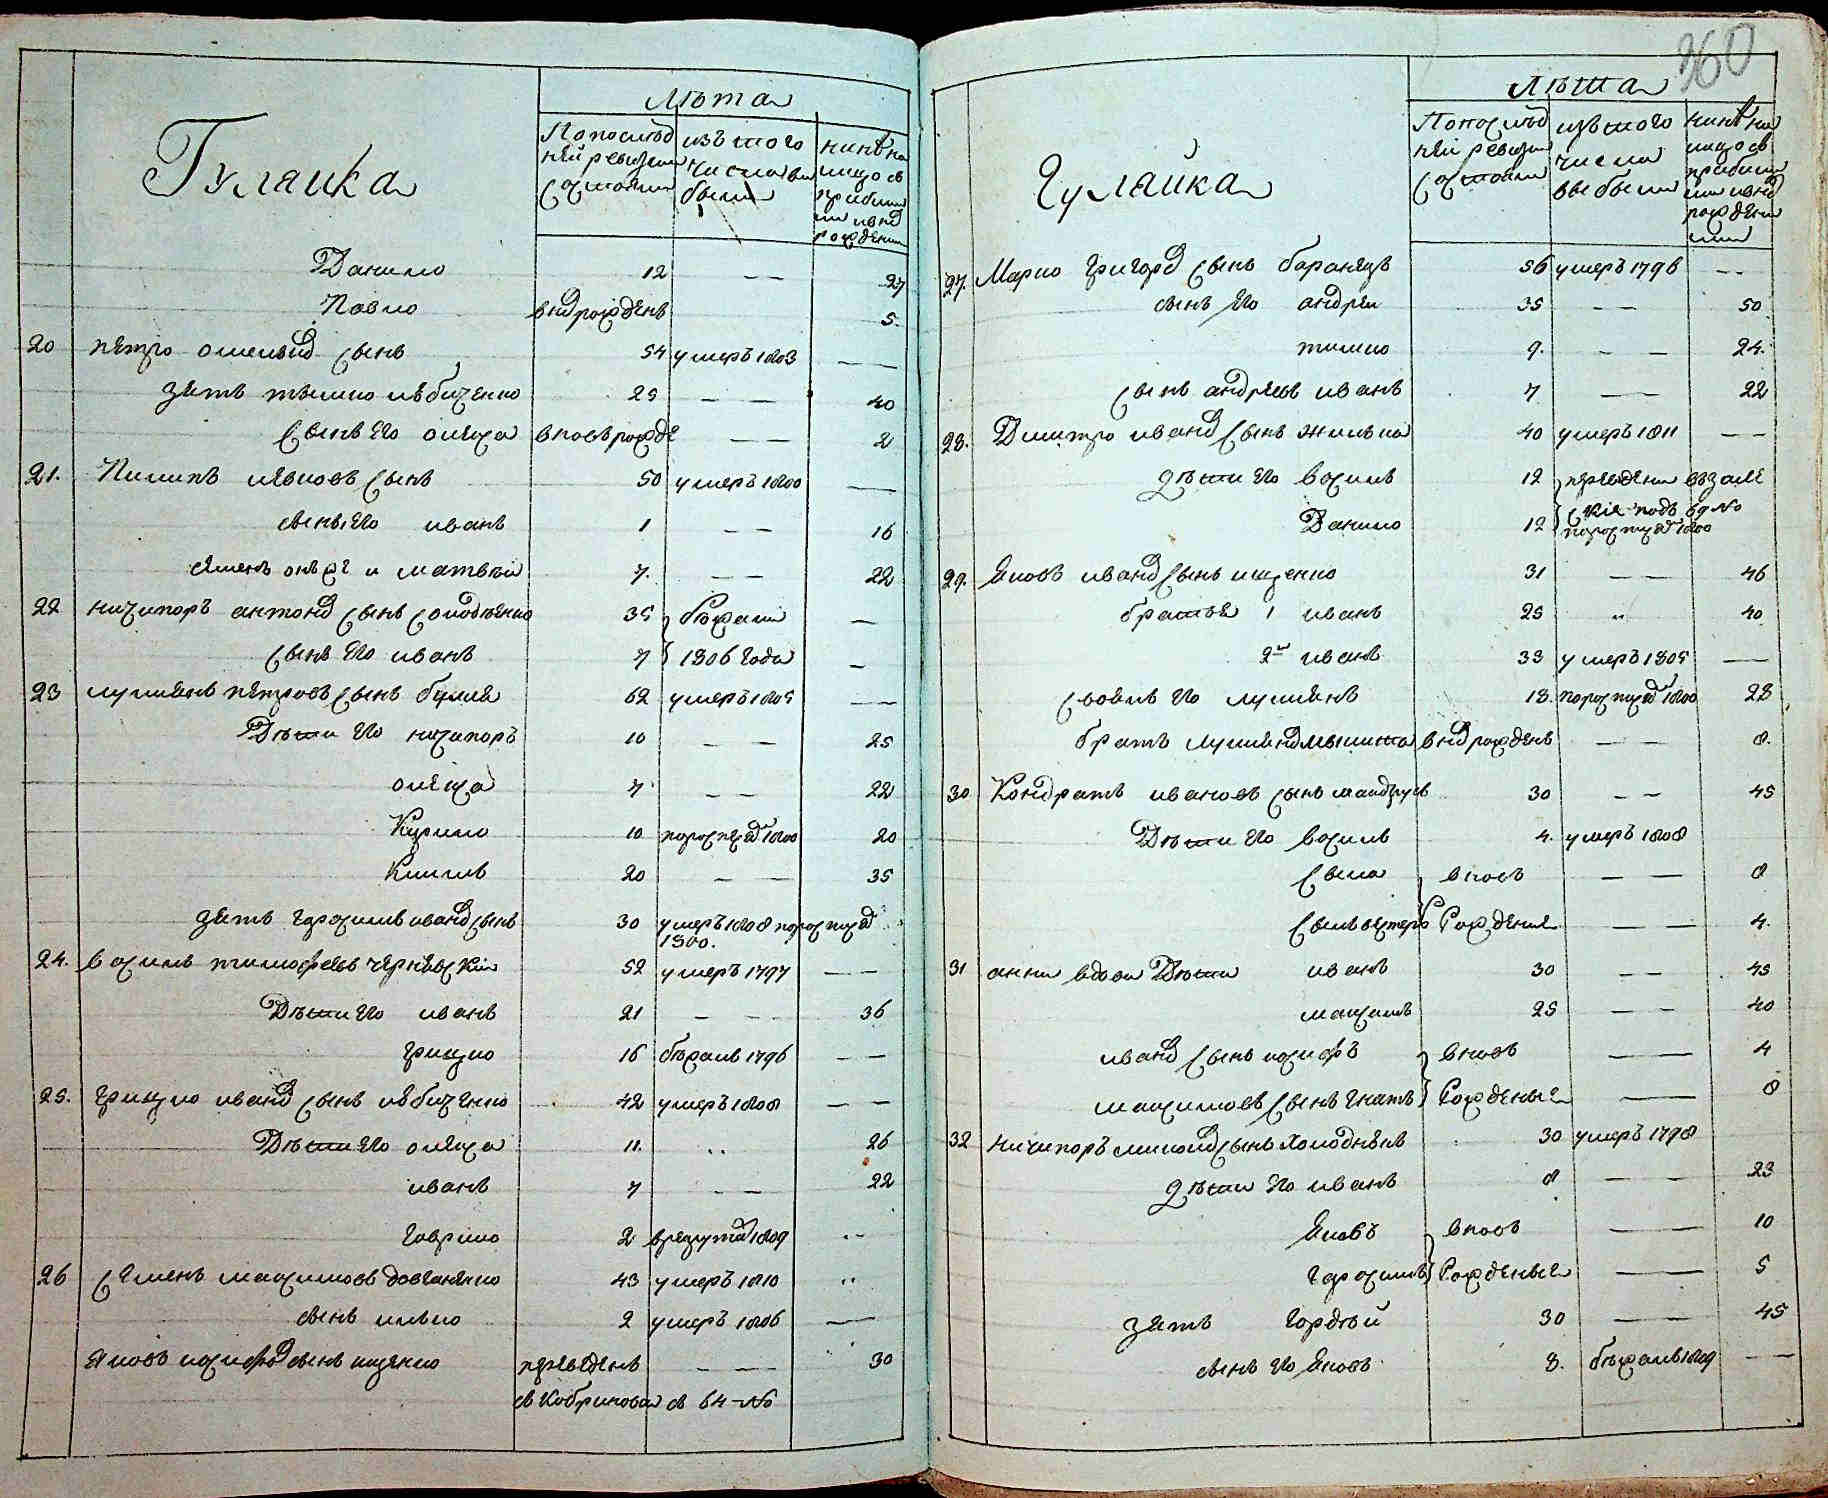 360
Гулаика
Лѣта
По послѣд
ней ревизии
состояли
изъ того
числа вы
были
нинѣ на
лицо съ
прибили
ми и внѡ
рожденн
Данило 12 — — 27
Павло внѡ рожденъ 5.
20 петро олексѣев сынъ 54 умеръ 1803 —
зять тѣшко 25 — — 40
сынъ его олекса вновь рожде — — 2
21. Пилипъ яковъ сынъ 50 умеръ 1800 —
сынъ его иванъ 1 — — 16
семенъ онъ же и матвѣй 7. — — 22
22 ничипоръ антонов сынъ солодченко 35 бѣжали —
сынъ его иванъ 7 1806 года —
23 лукьянъ петровъ сынъ 62 умеръ 1805 —
Дѣти его ничипоръ 10 — — 25
олекса 7 — — 22
Кирило 10 1800 20
Климъ 20 — — 35
зять герасимъ иванов сынъ 30 умеръ 1808
1800.
24. василь тимофеевъ чернявский 52 умеръ 1797 — —
Дѣти его иванъ 21 — — 36
грицко 16 бѣжалъ 1796 — —
25. грицко иванов сынъ 42 умеръ 1808 — —
Дѣти его олекса 11. .. 26
иванъ 7 — — 22
гаврило 2 в рекруты 1809 ..
26 семенъ максимовъ довганенко 43 умеръ 1810 ..
сынъ илько 2 умеръ 1806 —
яковъ иосифов сынъ ищенко переведенъ — — 30
въ Кобринова въ 64 №
Гулайка
Лѣта
По послѣд
ней ревизии
состояли
изъ того
числа
выбыли
нинѣ на
лицо съ
прибили
ми и внѡ
рожден
ними
27. Марко григоров сынъ баранецъ 56 умеръ 1796 — —
сынъ его андрей 35 — — 50.
тимко 9. — — 24.
сынъ андреевъ иванъ 7 — — 22
28. Дмитро иванов сынъ 40 умеръ 1811 — —
дѣти его василь 12 переведени
Данило 12 подъ 69 №
1800
29. Яковъ иванов сынъ ищенко 31 — — 46
братья 1 иванъ 25 .. 40
2й иванъ 33 умеръ 1805 —
своякъ его лукьянъ 18. 1800 28
братъ лукьянов микита внѡ рожденъ — — 8.
30 Кондратъ ивановъ сынъ 30 — — 45
Дѣти его василь 4. умеръ 1808
сава вновь — — 8
сильвестеръ Рожденне — — 4.
31 анни вдови Дѣти иванъ 30 — — 45
максимъ 25 — — 40
иванов сынъ иосифъ вновь — 4
максимовъ сынъ гнатъ Рожденые — 8
32 ничипоръ сынъ холоднякъ 30 умеръ 1798
дѣти его иванъ 8 — — 23
Яковъ вновь — 10
герасимъ Рожденые — 5
зять гордѣй 30 — 45
сынъ его Яковъ 8. бѣжалъ 1809 —